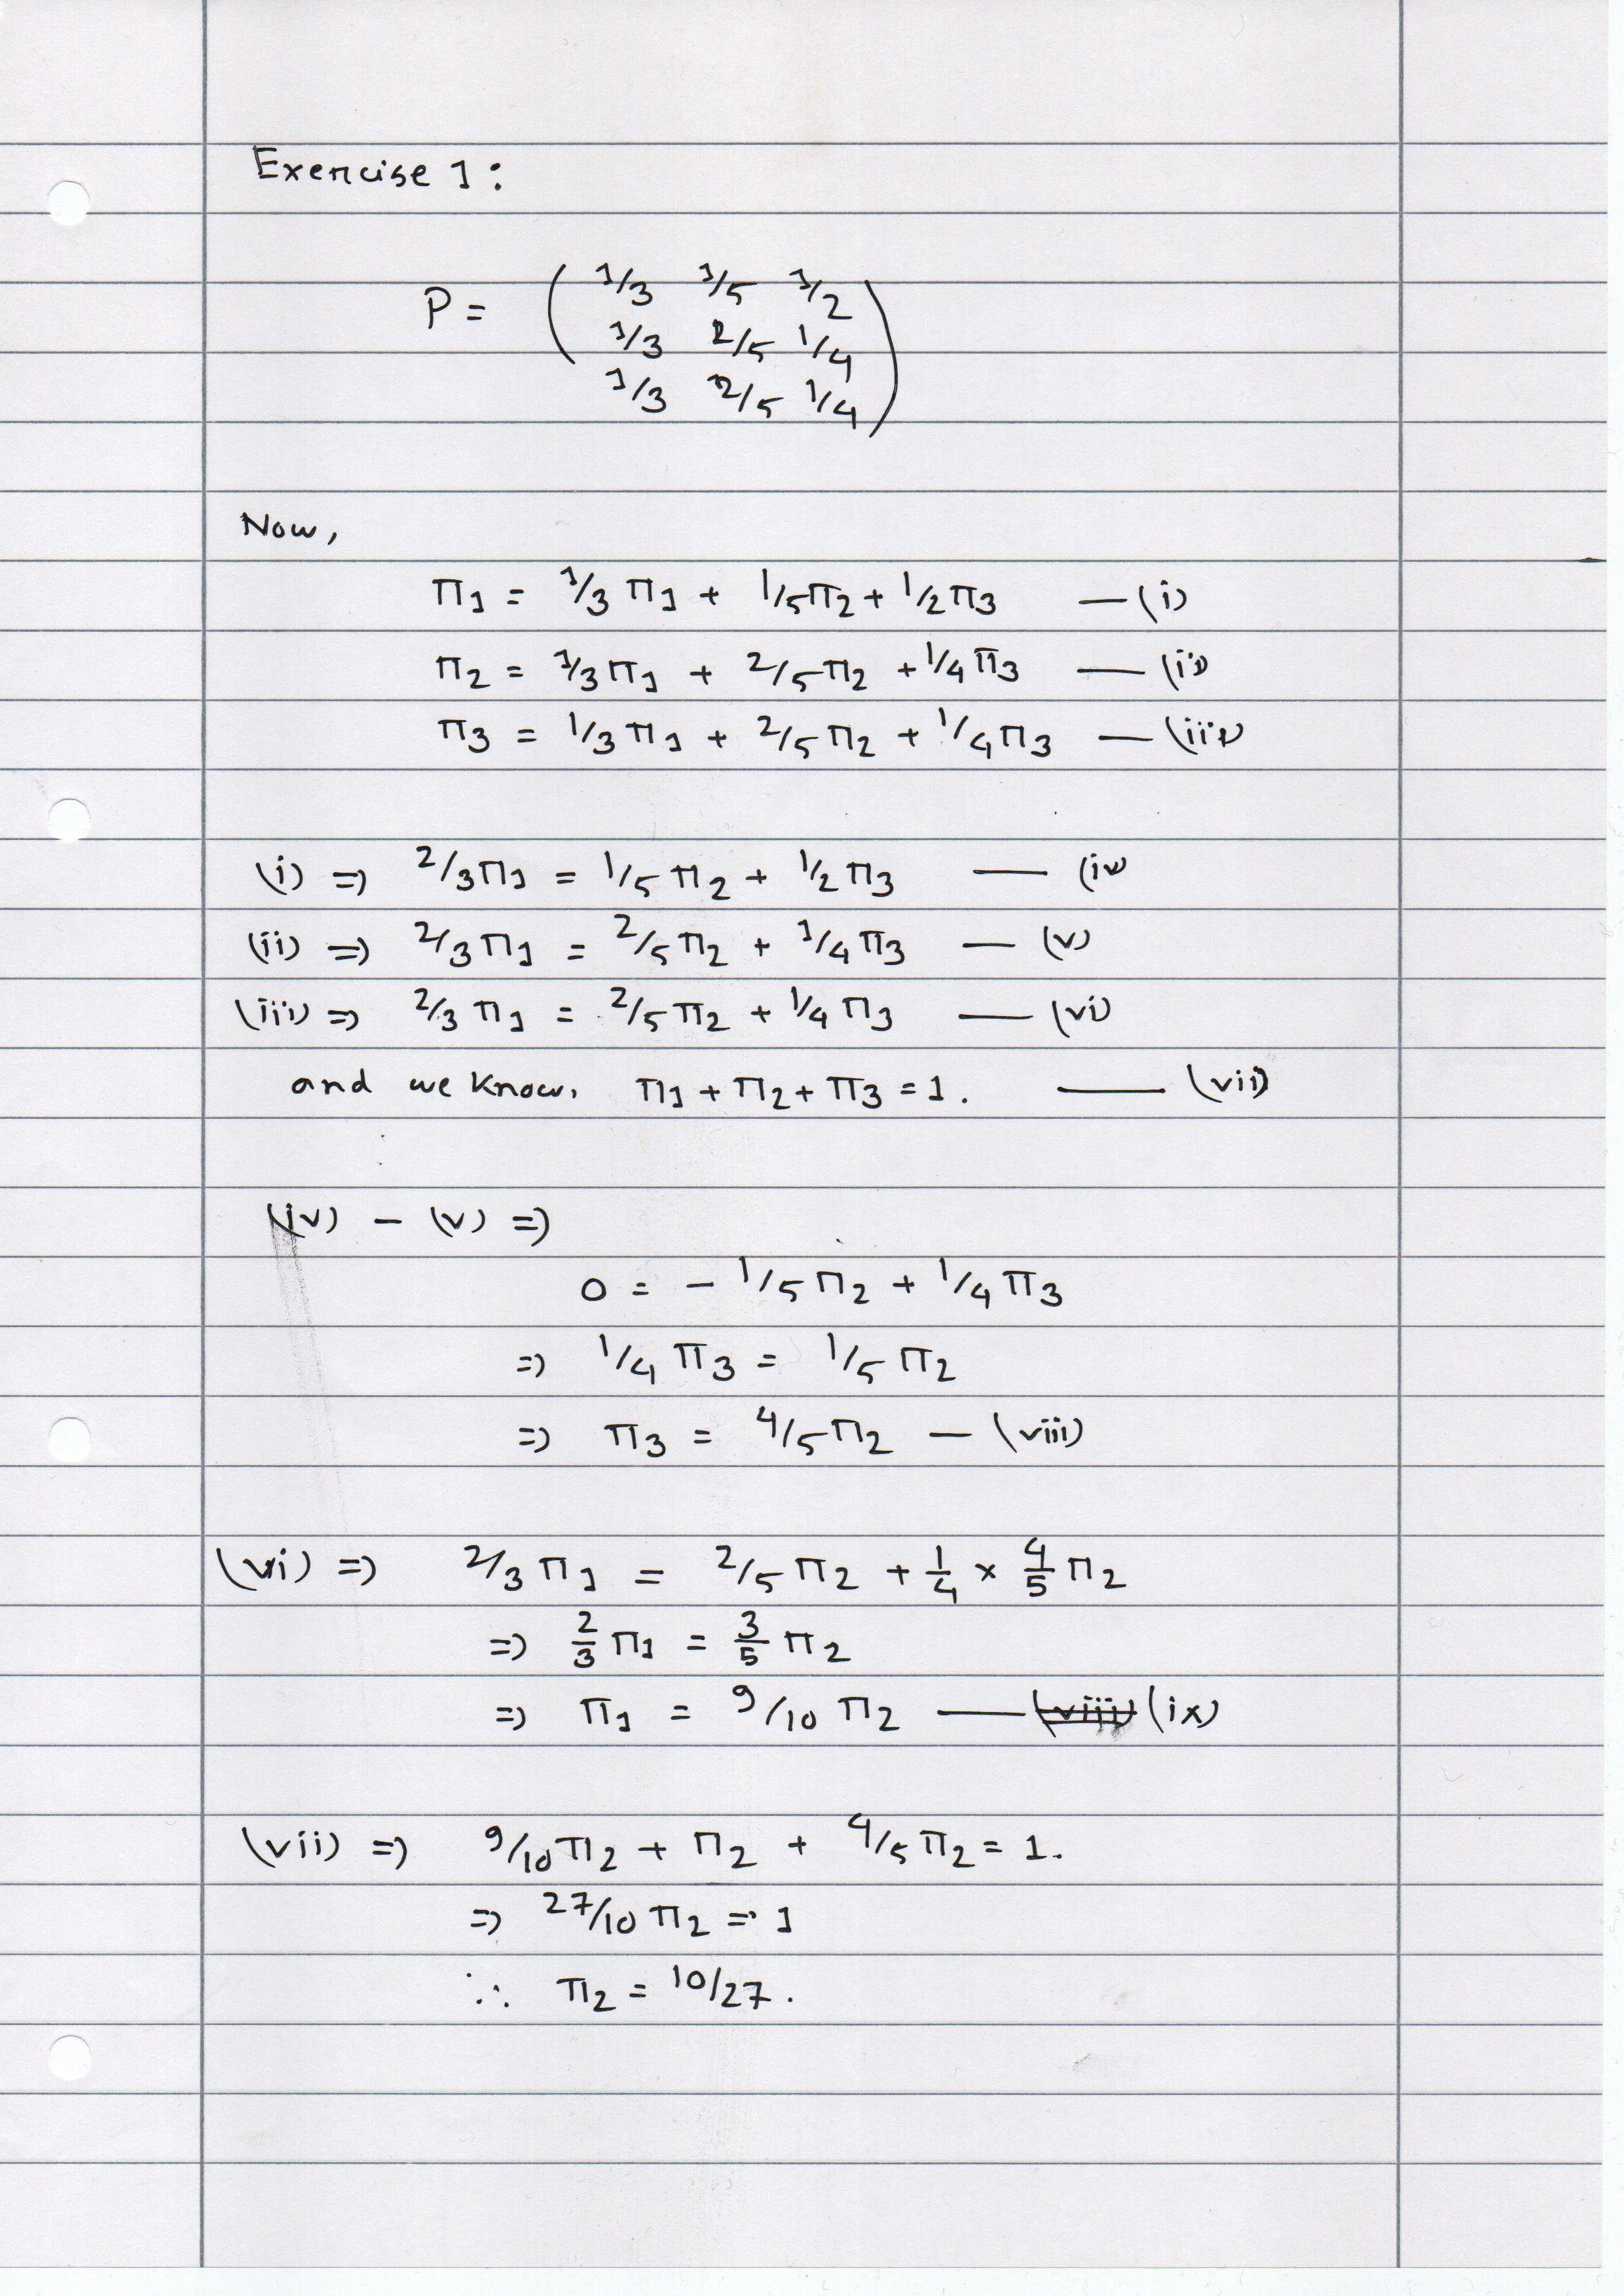 Exercise 1:
P = ( 1/3 1/5 1/2
1/3 2/5 1/4
1/3 2/5 1/4 )
Now,
π1 = 1/3 π1 + 1/5 π2 + 1/2 π3 — (i)
π2 = 1/3 π1 + 2/5 π2 + 1/4 π3 — (ii)
π3 = 1/3 π1 + 2/5 π2 + 1/4 π3 — (iii)
(i) => 2/3 π1 = 1/5 π2 + 1/2 π3 — (iv)
(ii) => 2/3 π1 = 2/5 π2 + 1/4 π3 — (v)
(iii) => 2/3 π1 = 2/5 π2 + 1/4 π3 — (vi)
and we know, π1 + π2 + π3 = 1. — (vii)
(iv) - (v) =>
0 = - 1/5 π2 + 1/4 π3
=> 1/4 π3 = 1/5 π2
=> π3 = 4/5 π2 — (viii)
(vi) => 2/3 π1 = 2/5 π2 + 1/4 × 4/5 π2
=> 2/3 π1 = 3/5 π2
=> π1 = 9/10 π2 — (viii) (ix)
(vii) => 9/10 π2 + π2 + 4/5 π2 = 1.
=> 27/10 π2 = 1
∴ π2 = 10/27.